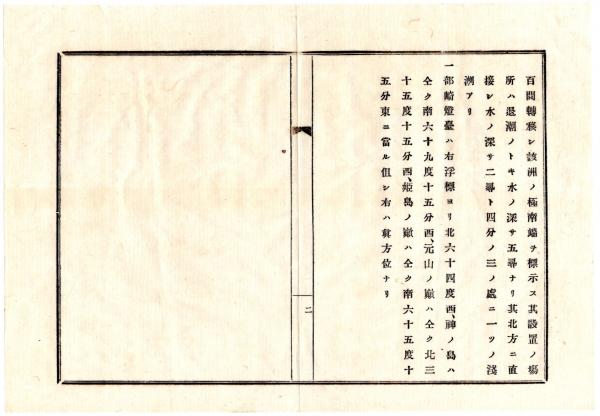 百間轉移シ該洲ノ極南端ヲ標示ス其設置ノ塲
所ハ退潮ノトキ水ノ深サ五尋ナリ其北方ニ直
接シ水ノ深サ二尋ト四分ノ三ノ處ニ一ツノ淺
洲アリ
一部崎燈臺ハ右浮標ヨリ北六十四度西、神ノ島ハ
仝ク南六十九度十五分西、元山ノ巓ハ仝ク北三
十五度十五分西、姫島ノ巓ハ仝ク南六十五度十
五分東ニ當ル但シ右ハ眞方位ナリ
二